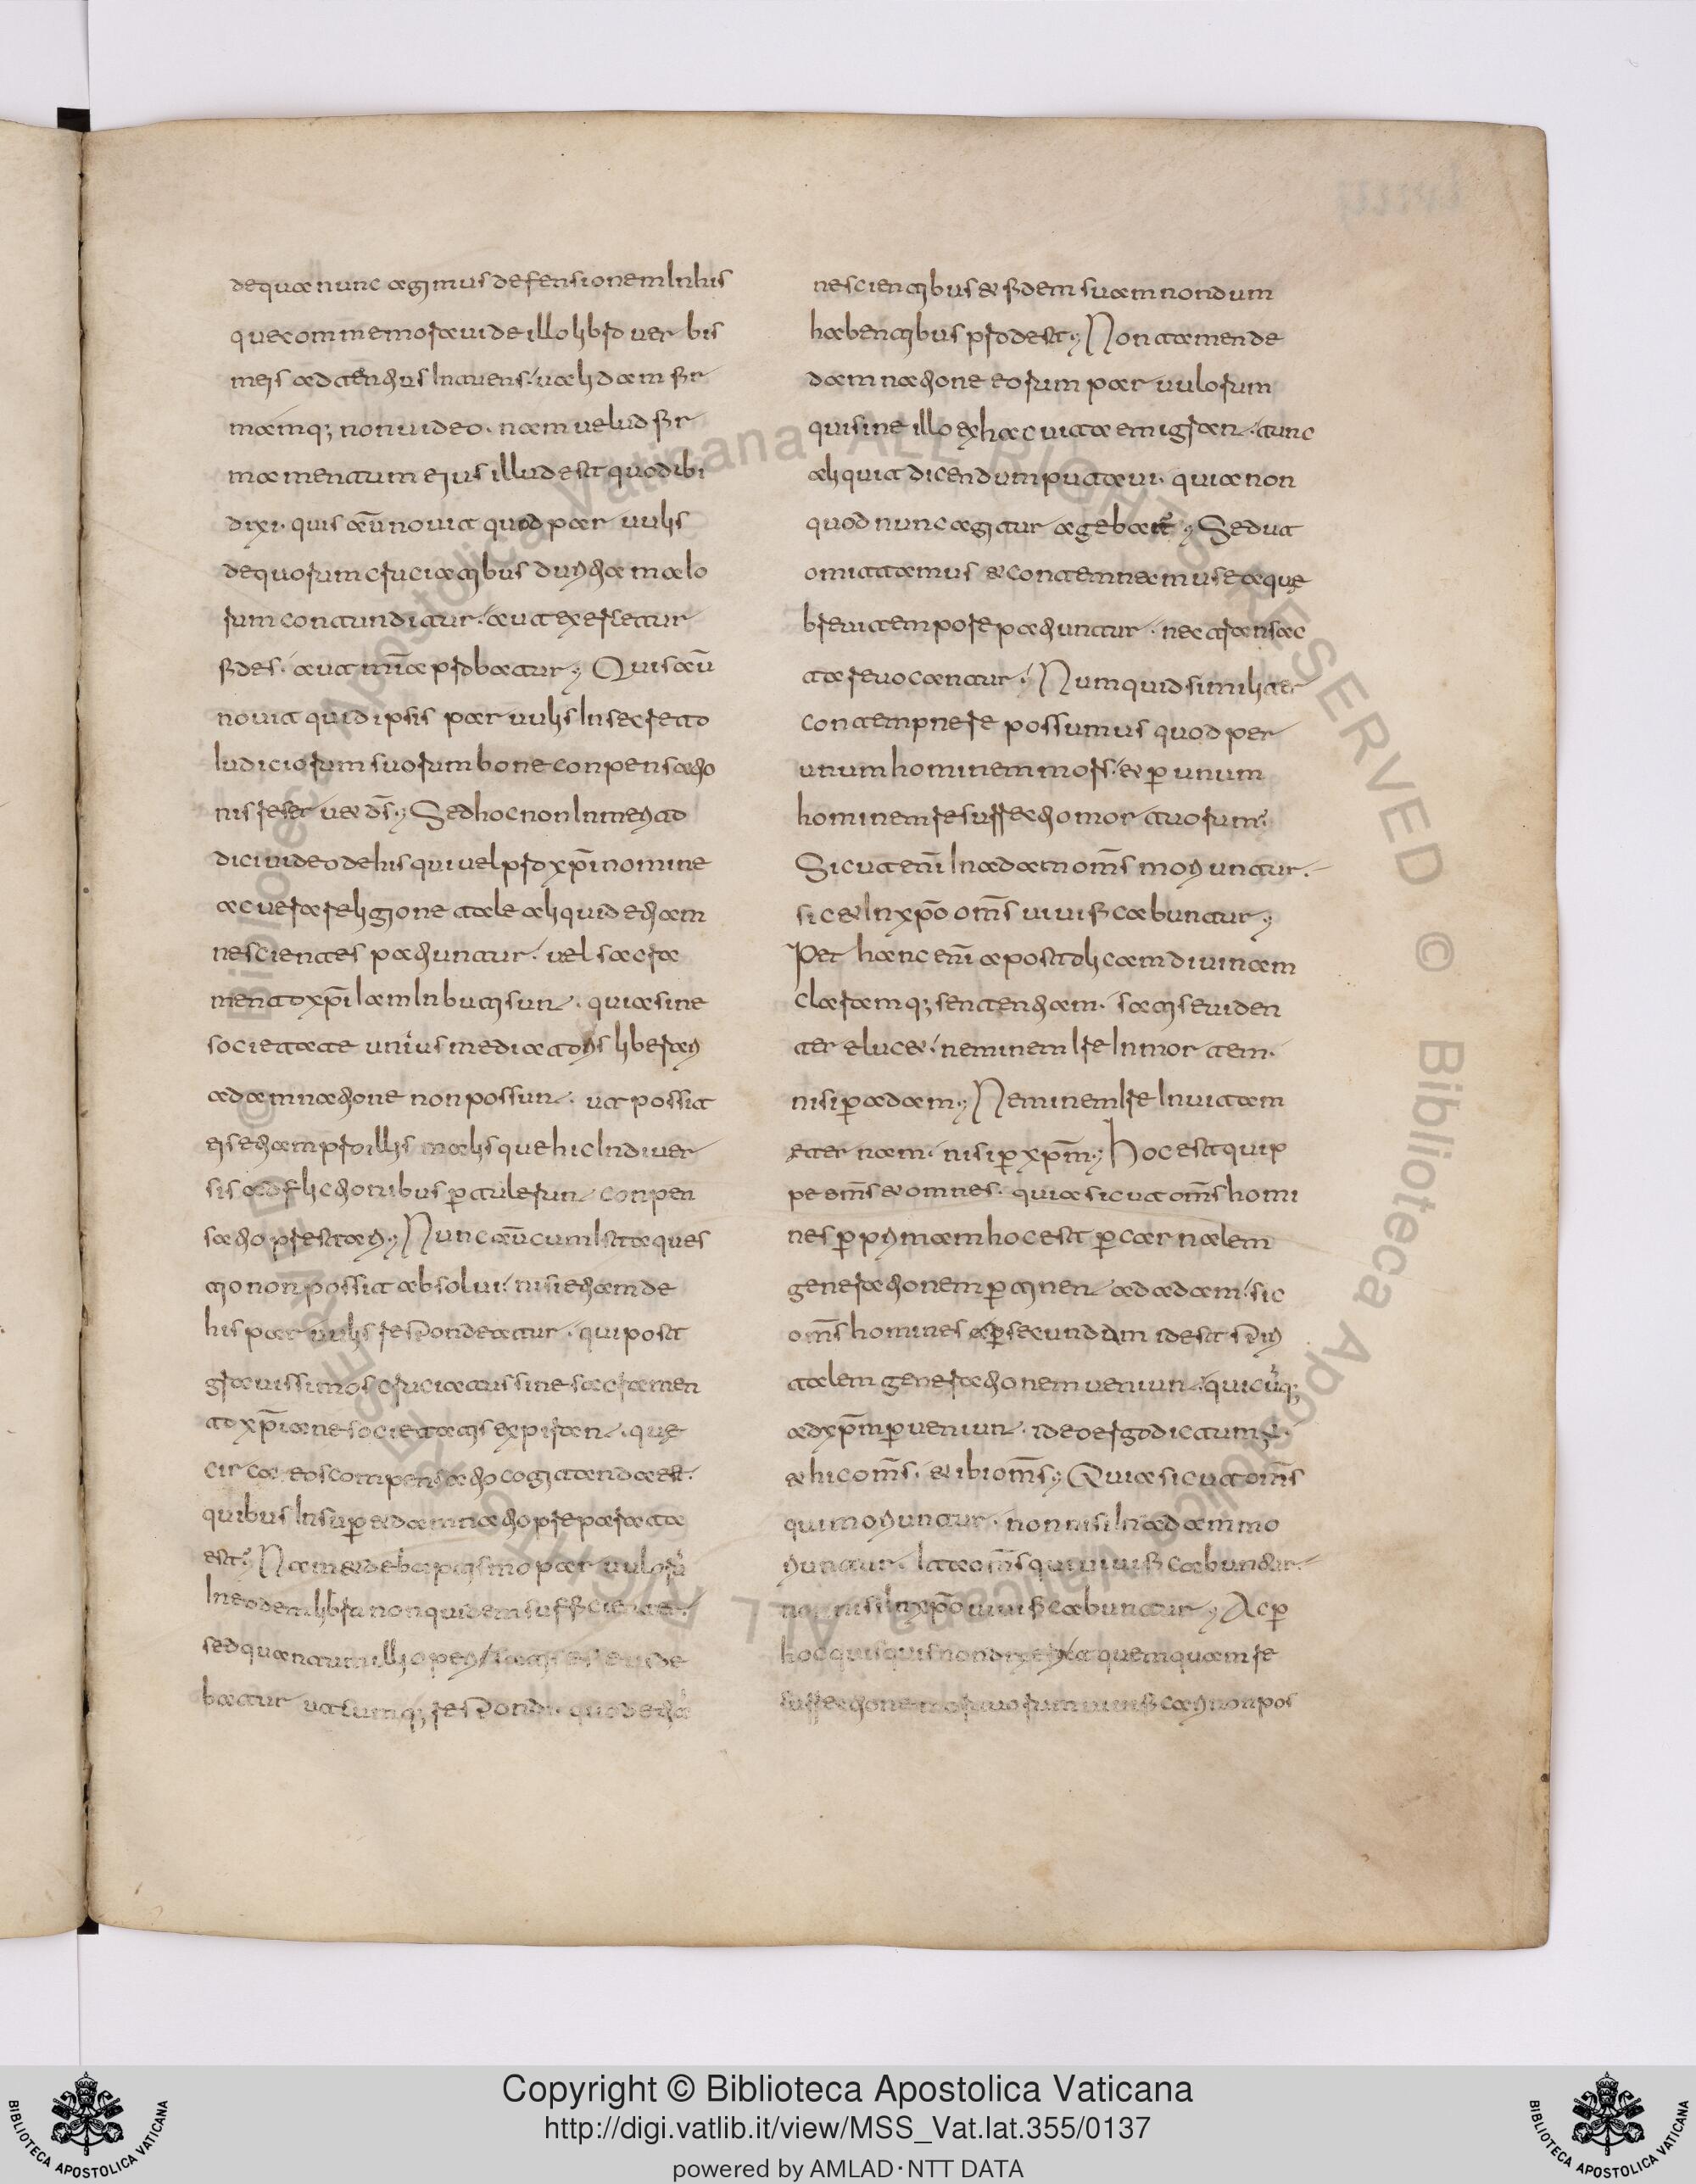 de qua nunc agimus defensionem In his
que commemoraui de illo libro uerbis
meis adtentius Intuens. ualidam fir
mamq; non uideo. nam uelud fir
mamentum eius illud est quod ibi
dixi. quis aū nouit quod paruulis
de quorum cruciatibus duritia malo
rum contunditur. aut exercetur
fides. aut mīa probatur; Quis aū
nouit quid ipsis paruulis In secreto
Iudiciorum suorum bone conpensatio
nis reseruet dš; Sed hoc non Inmerito
dici uideo de his qui uel pro xp̄i nomine
ac uera religione tale aliquid etiam
nescientes patiuntur. uel sacra
mento xp̄i Iam Inbuti sunt. quia sine
societate unius mediatoris liberari
a damnatione non possunt. ut possit
eis etiam pro illis malis que hic In diuer
sis adflictionibus ꝑtulerunt conpen
satio prestari; Nunc aū cum Ista ques
tio non possit absolui. nisi etiam de
his paruulis respondeatur. qui post
grauissimos cruciatus sine sacramen
to xp̄iane societatis expirant. que
circa eos compensatio cogitanda est.
quibus Insuꝑ et damnatio preparata
est; Nam et de baptismo paruulorū
In eodem libro non quidem sufficienter.
sed quantum illi operi satis esse uide
batur utcumq; respondi. quod etiā
nescientibus et fidem suam nondum
habentibus prodest; Non tamen de
damnatione eorum paruulorum
qui sine illo ex hac uita emigrant. tunc
aliquit dicendum putaui. quia non
quod nunc agitur agebatur; Sed ut
omittamus et contemnamus ea que
breui tempore patiuntur. nec transac
ta reuocantur. Numquid similiter
contempnere possumus quod per
unum hominem mors. et ꝑ unum
hominem resurrectio mortuorum.
Sicut eni In adam oms̄ moriuntur.
sic et In xp̄o oms̄ uiuificabuntur;
Per hanc eni apostolicam diuinam
claramq; sententiam. satis euiden
ter elucet. neminem Ire In mortem.
nisi ꝑ adam; Neminem Ire In uitam
eternam. nisi ꝑ xp̄m; Hoc est quip
pe oms̄ et omnes. quia sicut oms̄ homi
nes ꝑ primam hoc est ꝑ carnalem
generationem ꝑtinent ad adam. sic
oms̄ homines ꝑ secundam idest spiri
talem generationem ueniunt. quicūq;
ad xp̄m ꝑueniunt. ideo ergo dictum ē.
et hic oms̄. et ibi oms̄; Quia sicut oms̄
qui moriuntur. non nisi In adam mo
riuntur. Ita et oms̄ qui uiuificabuntur.
non nisi In xp̄o uiuificabuntur; Ac ꝑ
hoc quisquis nondixerit quemquam re
surrectione mortuorum uiuificari non pos
© Biblioteca Apostolica Vaticana ALL RIGHTS RESERVED
Copyright © Biblioteca Apostolica Vaticana
http://digi.vatlib.it/view/MSS_Vat.lat.355/0137
powered by AMLAD·NTT DATA
BIBLIOTECA APOSTOLICA VATICANA
BIBLIOTECA APOSTOLICA VATICANA